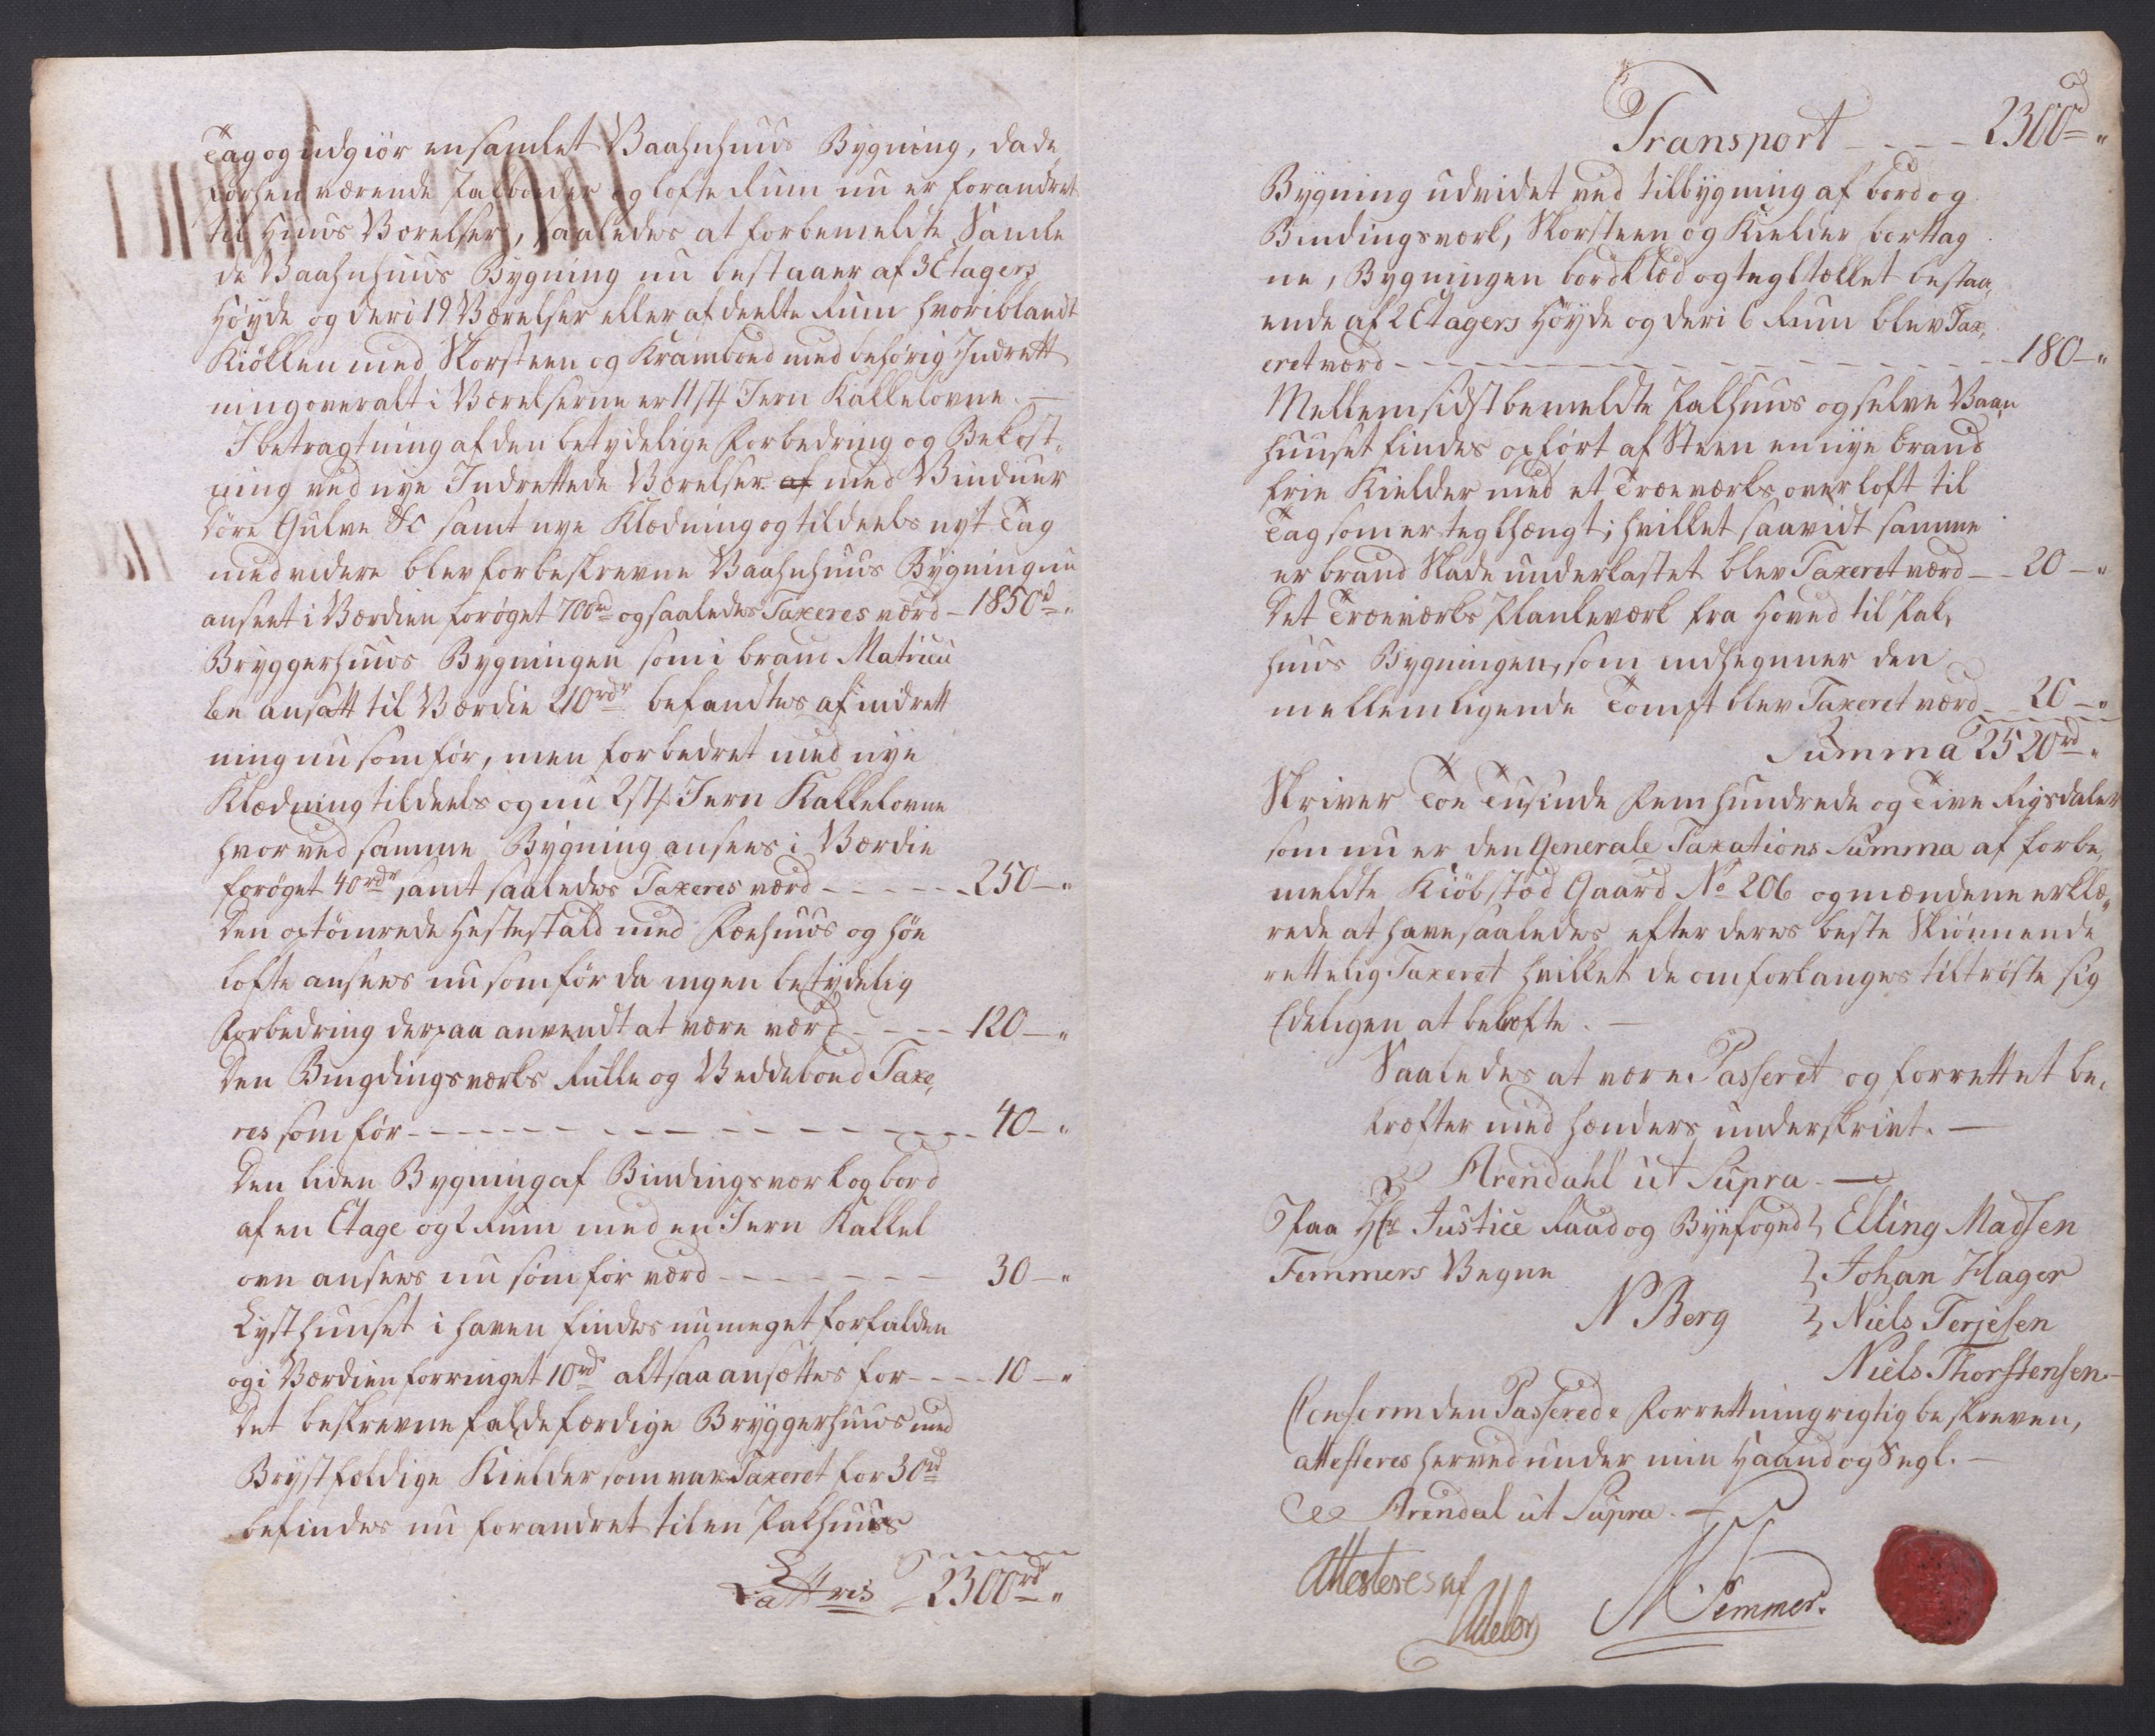 Tag og udgiør en samlet Vaahnhuus Bygning, da de
forhen værende Pakboeder og lofte Rum nu er forandret
til Huus Værelser, saaledes at forbemeldte Samle
de Vaahnhuus Bygning nu bestaaer af 3 Etagers
Høyde og deri 19 Værelser eller afdeelte Rum hvoriblandt
Kiøkken med Skorsteen og Kramboed med behørig Indrett
ning overalt i Værelserne er 11 st/ Jern Kakkelovne. —
I betragtning af den betydelige Forbedring og Bekost,
ning ved nye Indrettede Værelser af med Vinduer
Döre Gulve &c samt nye Klædning og tildeels nyt Tag
med videre blev forbeskrevne Vaahnhuus Bygning nu
anseet i Værdien forøget 700rd og saaledes Taxeres værd – 1850rd "
Bryggerhuus Bygningen som i brand Matricu
len ansatt til Værdie 210rdr befandtes af indrett
ning nu som før, men forbedret med nye
Klædning tildeels og nu 2 st/ Jern Kakkelovne
hvorved samme Bygning ansees i Værdie
forøget 40rdr, samt saaledes Taxeres værd – – – – – 250 – "
Den optömrede Hestestald med Fæehuus og Höe
lofte ansees nu som før da ingen betydelig
Forbedring derpaa anvendt at være værd – – – – 120 – "
Den Bingdingsværks Rulle og Veddeboed Taxe,
res som før – – – – – – – – – – – – 40 – "
Den liden Bygning af Bindingsværk og bord
af en Etage og 2 Rum med en Jern Kakkel
ovn ansees nu som før værd – – – – – – – 30 – "
Lysthuuset i Haven findes nu meget forfalden
og i Værdien forringet 10rd altsaa ansættes for – – – – 10 – "
Det beskrevne faldefærdige Bryggerhuus med
Brystfældige Kielder som var Taxeret for 30rd
befindes nu forandret til en Pakhuus
Lattris 2300rd "
Transport – – – – 2300rd "
Bygning udvidet ved tilbygning af bord og
Bindingsværk, Skorsteen og Kielder borttag
ne, Bygningen bordklæd og tegltækket bestaa,
ende af 2 Etagers Höyde og deri 6 Rum blev Tax,
eret værd – – – – – – – – – – – – 180 – "
Mellem sidstbemeldte Pakhuus og selve Vaan
huuset findes opført af Steen en nye brand
frie Kielder med et Træeværks overloft til
Tag som er teglhængt; hvilket saavidt samme
er brand Skade underkastet blev Taxeret værd – – 20 – "
Det Træeværks Plankeværk fra Hoved til Pak,
huus Bygningen, som indhegnner den
mellemligende Tomt blev Taxeret værd – – 20 – "
Summa 2520rd "
Skriver Toe Tusinde Fem hundrede og Tive Rigsdaler
som nu er den Generale Taxations Summa af forbe,
meldte Kiöbstæd Gaard No 206 og mændene erklæ,
rede at have saaledes efter deres beste Skiönnende
rettelig Taxeret hvilket de om forlanges tiltröste sig
Edeligen at bekræfte. —
Saaledes at være Passeret og forrettet be,
kræfter med hænders underskrivt. —
Arendahl ut Supra. —
Paa Hr Justice Raad og Byefoged } Elling Madsen
Femmers Vegne } Johan Hager
N Berg } Niels Terjesen
Niels Thorstensen.
Conform den Passerede Forrettning rigtig beskreven,
attesteres herved under min Haand og Segl. —
Arendal ut Supra. —
Attesteres af
N Femmer.